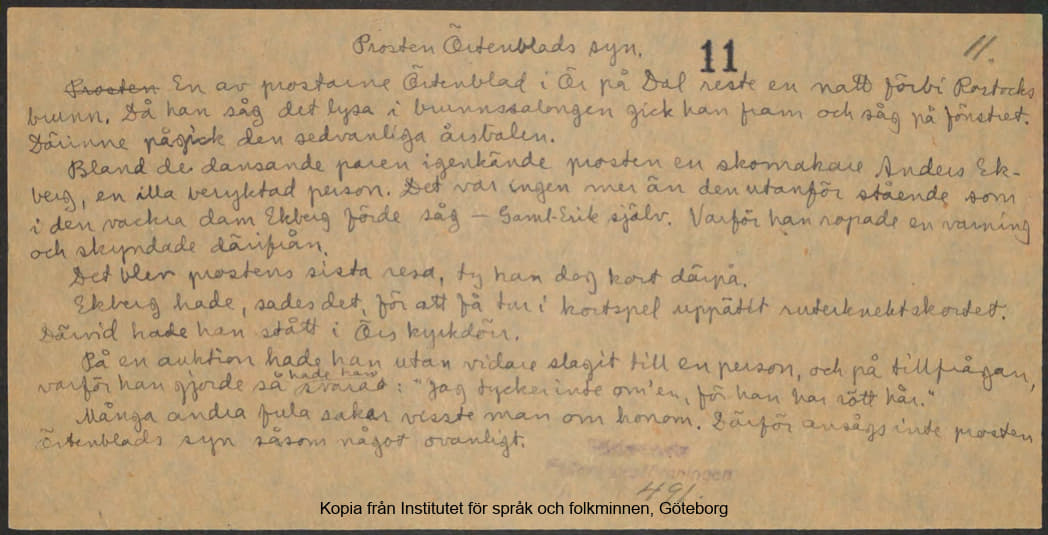 Prosten Örtenblads syn.
11
11.
Prosten En av prostarne Örtenblad i Ör på Dal reste en natt förbi Rostocks
brunn. Då han såg det lysa i brunnssalongen gick han fram och såg på fönstret.
Därinne pågick den sedvanliga årsbalen.
Bland de dansande paren igenkände prosten en skomakare Anders Ek-
berg, en illa beryktad person. Det var ingen mer än den utanför stående som
i den vackra dam Ekberg förde såg – Gaml-Erik själv. Varför han ropade en varning
och skyndade därifrån.
Det blev prostens sista resa, ty han dog kort därpå.
Ekberg hade, sades det, för att få tur i kortspel uppätit ruterknektskortet.
Därvid hade han stått i Örs kyrkdörr.
På en auktion hade han utan vidare slagit till en person, och på tillfrågan,
varför han gjorde så hade han svarat: "Jag tycker inte om'en, för han har rött hår."
Många andra fula saker visste man om honom. Därför ansågs inte prosten
Örtenblads syn såsom något ovanligt.
491.
Kopia från Institutet för språk och folkminnen, Göteborg